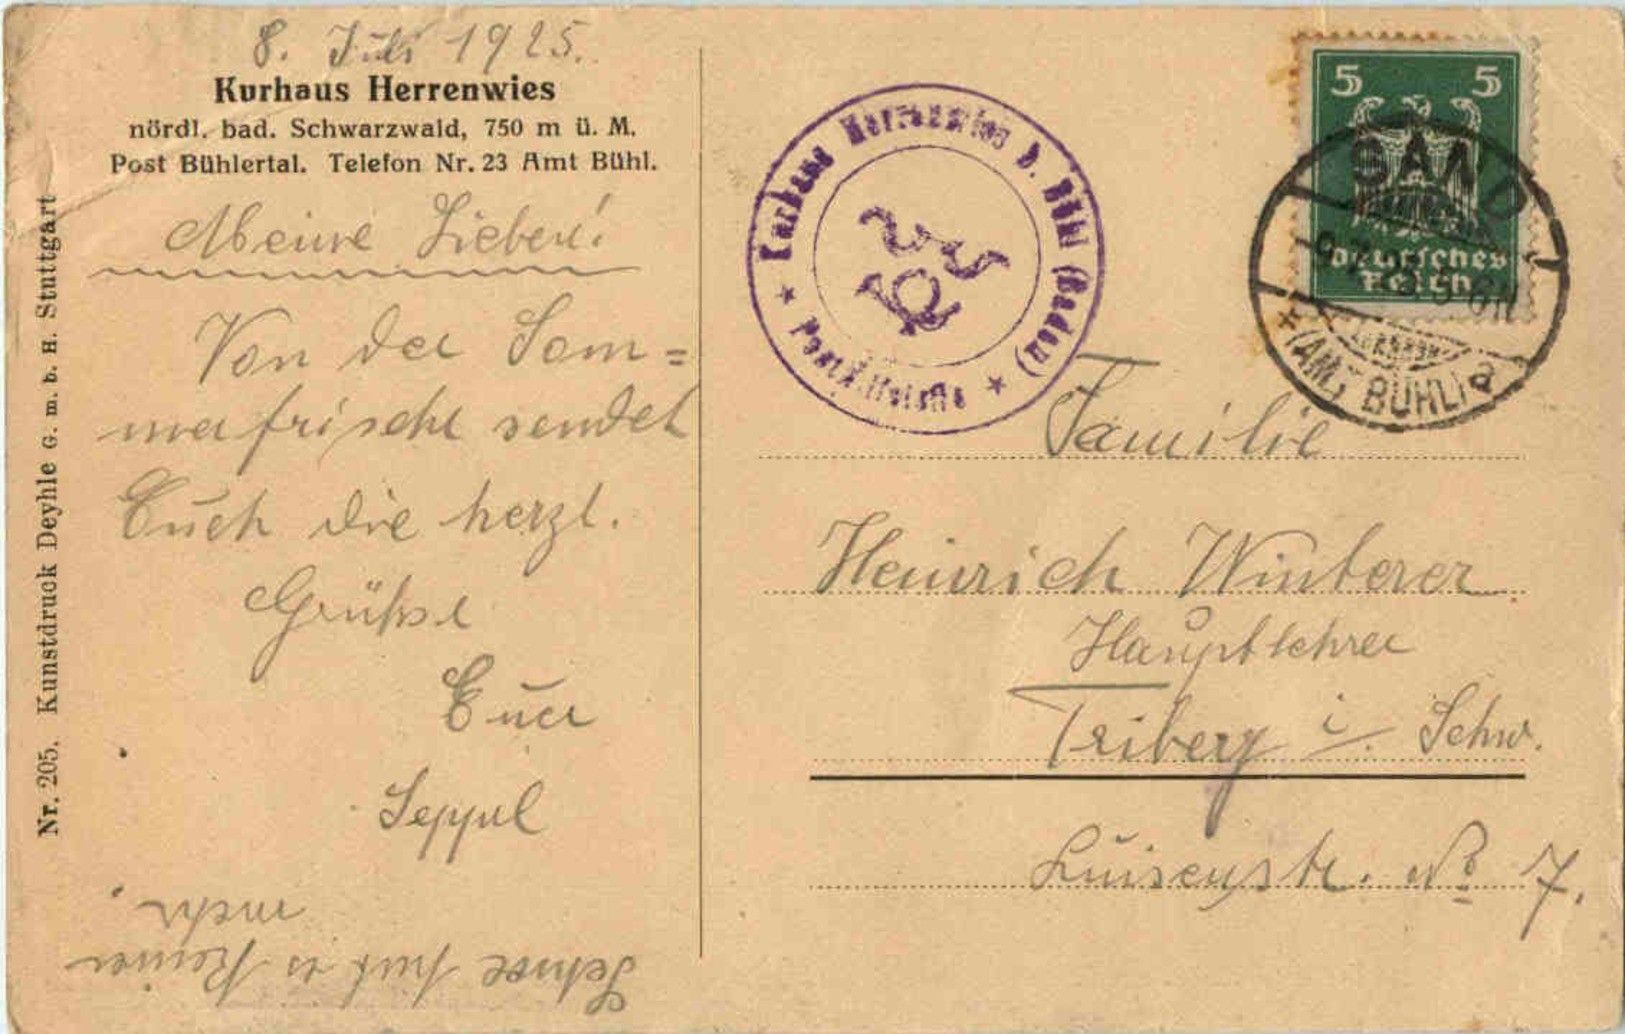 8. Juli 1925.
Kurhaus Herrenwies
nördl. bad. Schwarzwald, 750 m ü. M.
Post Bühlertal. Telefon Nr. 23 Amt Bühl.
Meine Lieben!
Von der Som=
merfrische sendet
Euch die herzl.
Grüße
Euer
Seppel
Schnee hat es keinen
mehr.
Nr. 205. Kunstdruck Deyhle G. m. b. H. Stuttgart
Kurhaus Herrenwies b. Bühl (Baden)
* Posthilfstelle *
5 5
Deutsches
Reich
SAND
* (AMT BÜHL) a
Familie
Heinrich Winterer
Hauptlehrer
Triberg i. Schw.
Luisenstr. No 7.